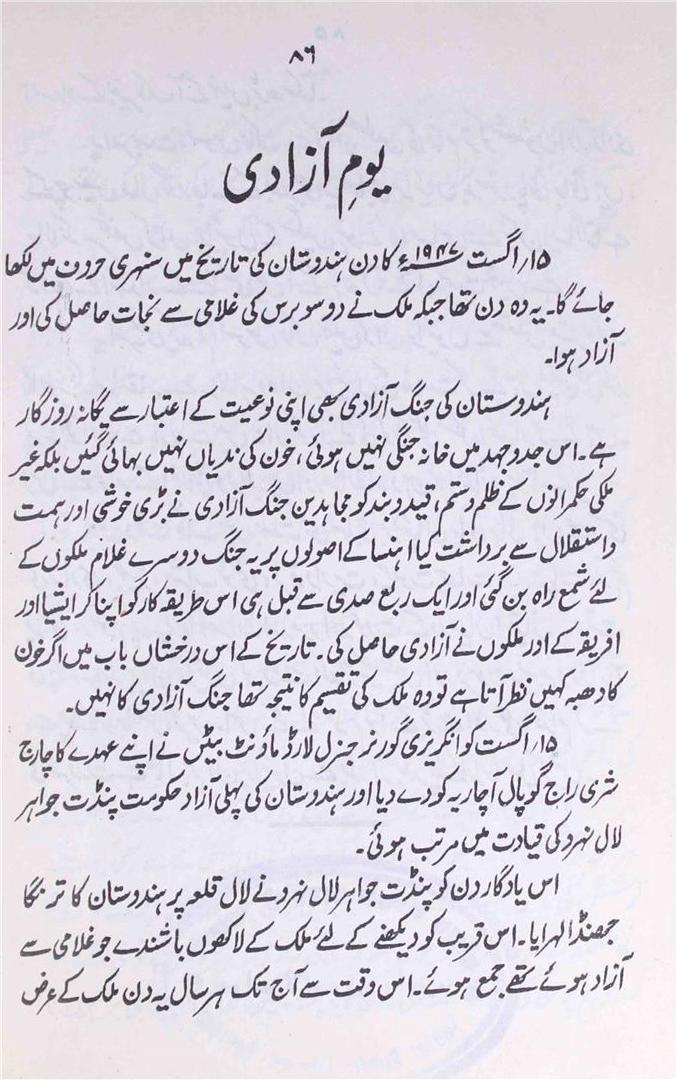 ۸۶
یومِ آزادی
۱۵؍ اگست ۱۹۴۷ء کا دن ہندوستان کی تاریخ میں سنہری حروف میں لکھا
جائے گا۔ یہ وہ دن تھا جبکہ ملک نے دو سو برس کی غلامی سے نجات حاصل کی اور
آزاد ہوا۔
ہندوستان کی جنگ آزادی بھی اپنی نوعیت کے اعتبار سے یگانہ روزگار
ہے۔ اس جدوجہد میں خانہ جنگی نہیں ہوئی، خون کی ندیاں نہیں بہائی گئیں بلکہ غیر
ملکی حکمرانوں کے ظلم و ستم، قید و بند کو مجاہدین جنگ آزادی نے بڑی خوشی اور ہمت
و استقلال سے برداشت کیا اہنسا کے اصولوں پر یہ جنگ دوسرے غلام ملکوں کے
لئے شمع راہ بن گئی اور ایک ربع صدی سے قبل ہی اس طریقہ کار کو اپنا کر ایشیا اور
افریقہ کے اور ملکوں نے آزادی حاصل کی۔ تاریخ کے اس درخشاں باب میں اگر خون
کا دھبہ کہیں نظر آتا ہے تو وہ ملک کی تقسیم کا نتیجہ تھا جنگ آزادی کا نہیں۔
۱۵؍ اگست کو انگریزی گورنر جنرل لارڈ ماؤنٹ بیٹن نے اپنے عہدے کا چارج
شری راج گوپال آچاریہ کو دے دیا اور ہندوستان کی پہلی آزاد حکومت پنڈت جواہر
لال نہرو کی قیادت میں مرتب ہوئی۔
اس یادگار دن کو پنڈت جواہر لال نہرو نے لال قلعہ پر ہندوستان کا ترنگا
جھنڈا لہرایا۔ اس قریب کو دیکھنے کے لئے ملک کے لاکھوں باشندے جو غلامی سے
آزاد ہوئے تھے جمع ہوئے۔ اس وقت سے آج تک ہر سال یہ دن ملک کے عرض